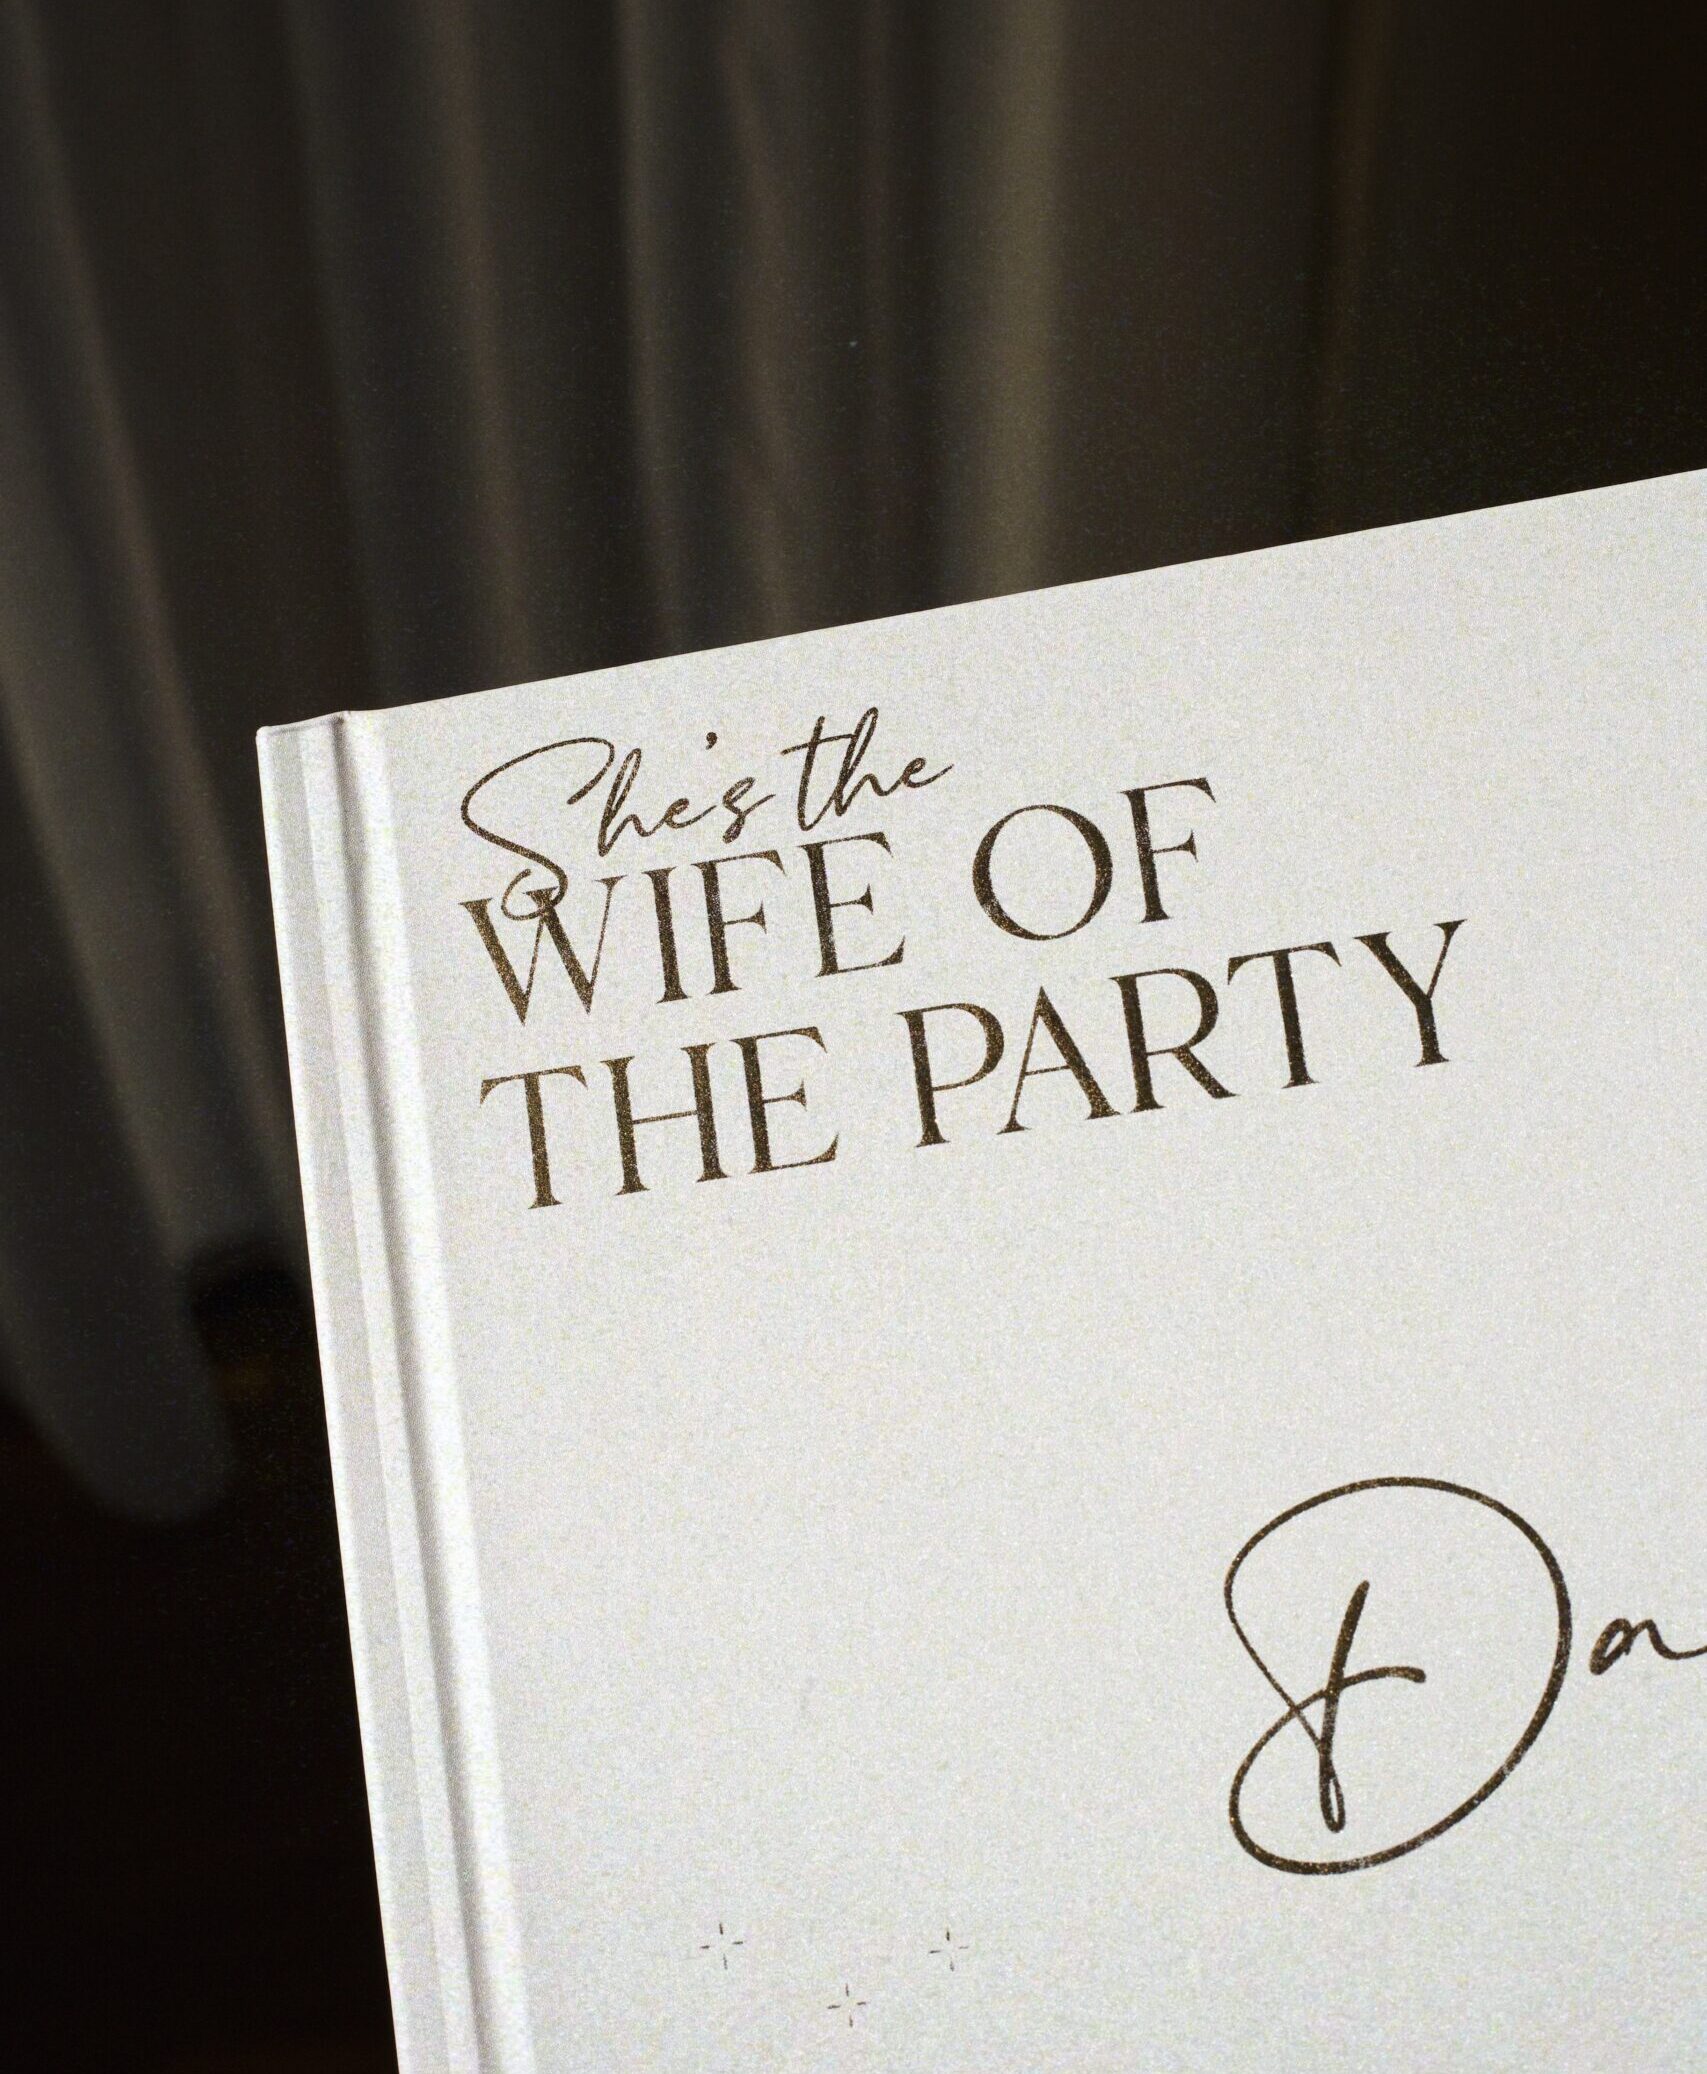 She's the
WIFE OF
THE PARTY